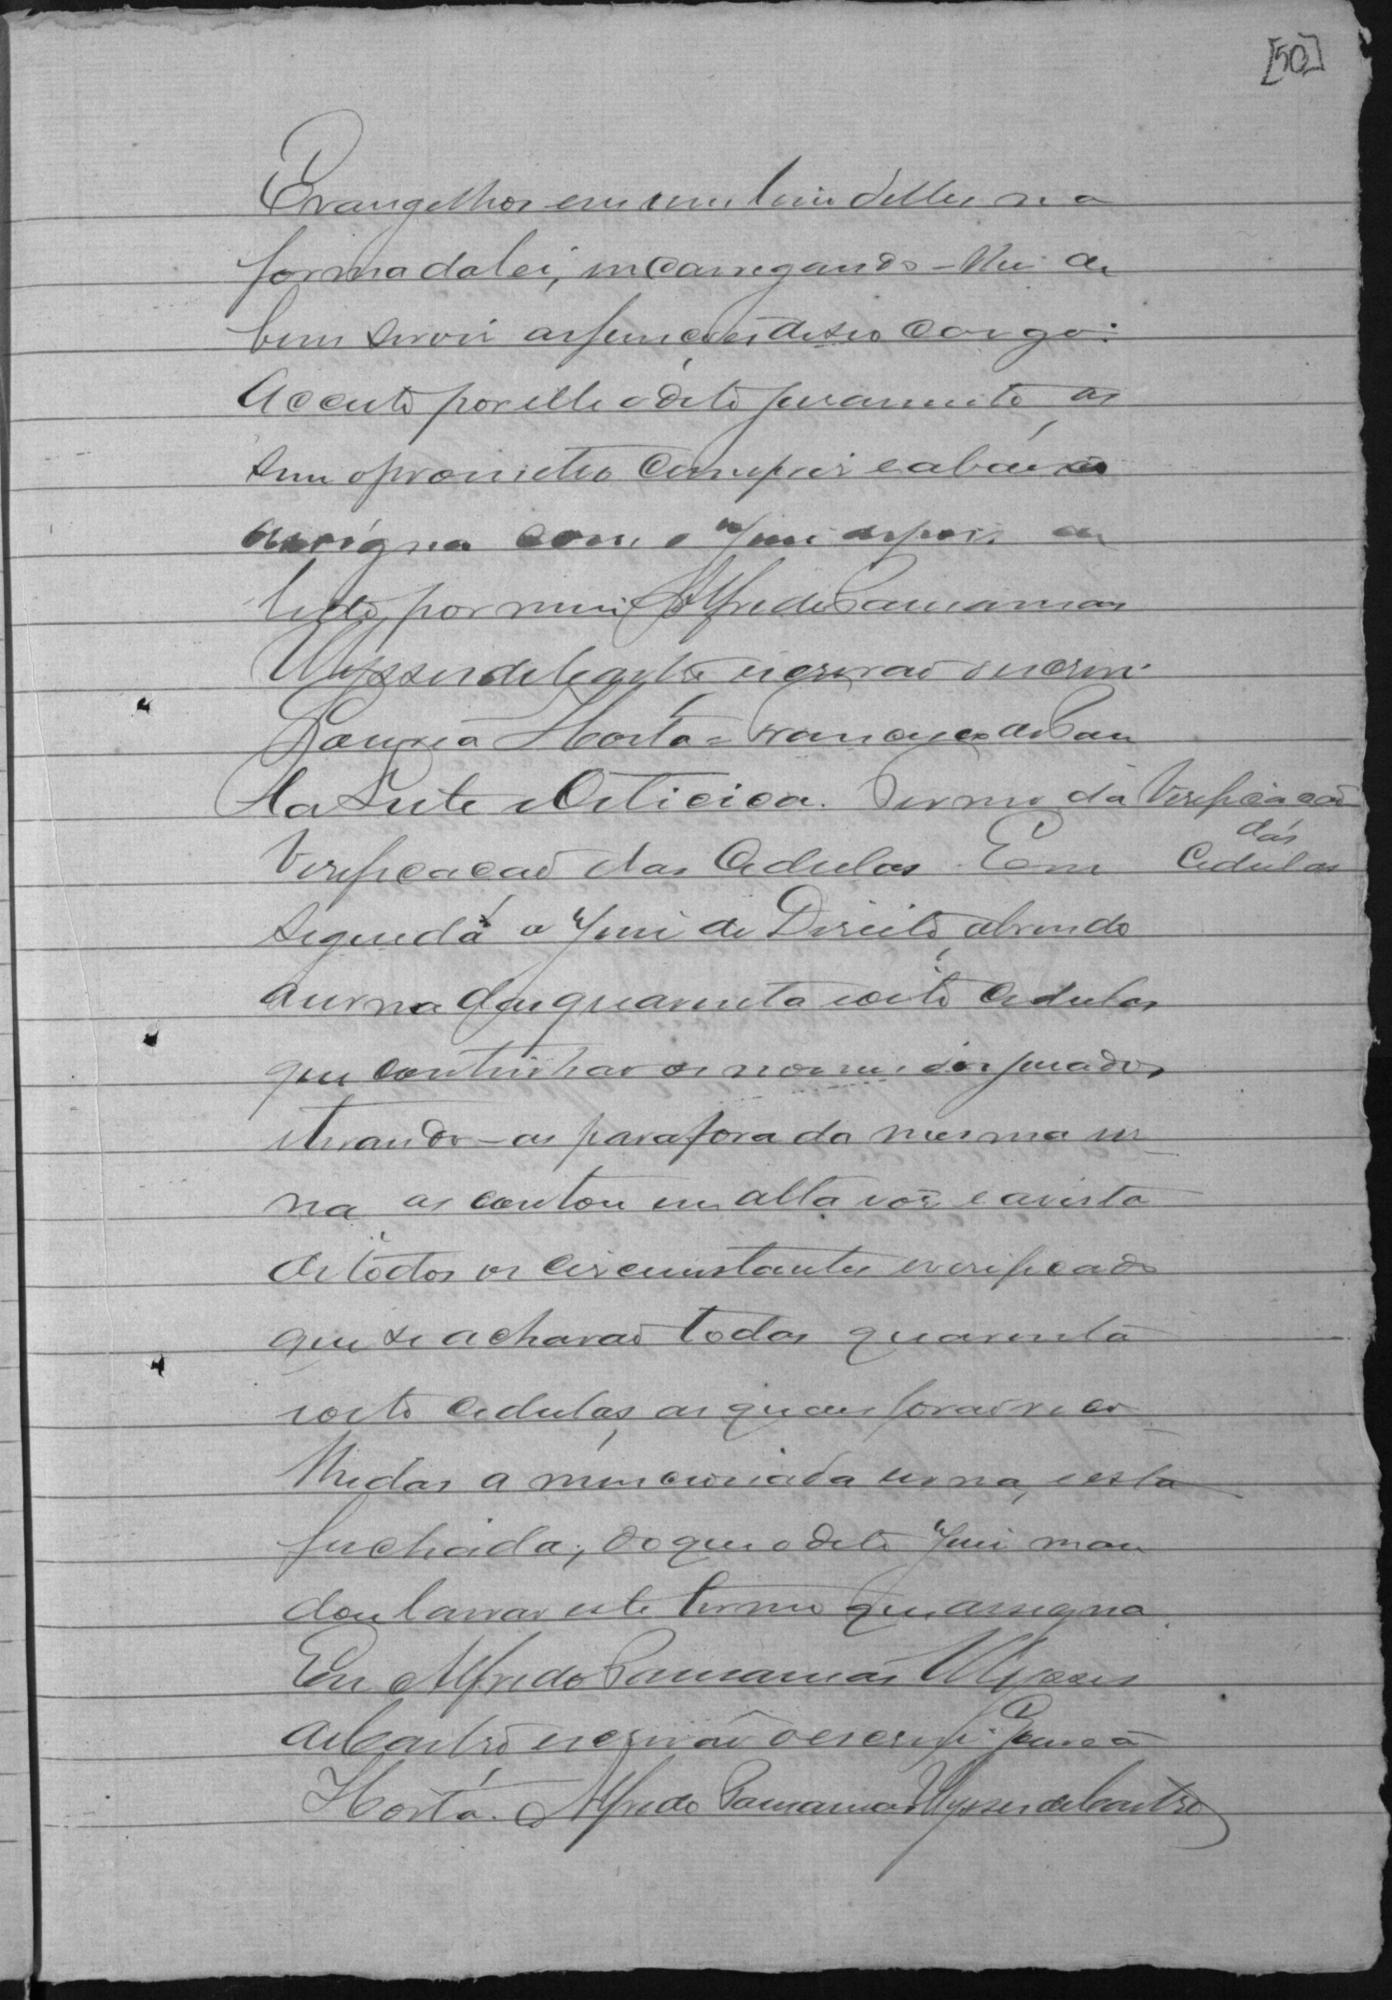 [50]
Evangelhos em um livro delles na
forma da lei, incarregando-lhe de
bem servir as funcções de seo cargo:
Acceito por elle o dito juramento, as
sim o prometteo cumprir e abaixo
assigna com o Juiz depois de
lido, por mim Alfredo
Ulysses de Castro escrivão o escrevi.
Gouvêa Horta = Francisco de Pau
la Leite e Oiticica. Termo da
Verificação
das
Cedulas
Verificacão das Cedulas. Em
seguida o Juiz de Direito, abrindo
a urna das quarenta e oito cedulas
que continhão os nomes dos jurados,
e tirando-as para fora da mesma ur
na as contou em alta voz e a vista
de todos os circumstantes e verificado
que se acharão todas quarenta
e oito cedulas, as quaes forão reco
lhidas a mencionada urna, e esta
fechada; do que o dito Juiz man
dou lavrar este termo que assigna.
Eu Alfredo Ulysses
de Castro escrivão o escrevi. Gouvêa
Horta. Alfredo Ulysses de Castro